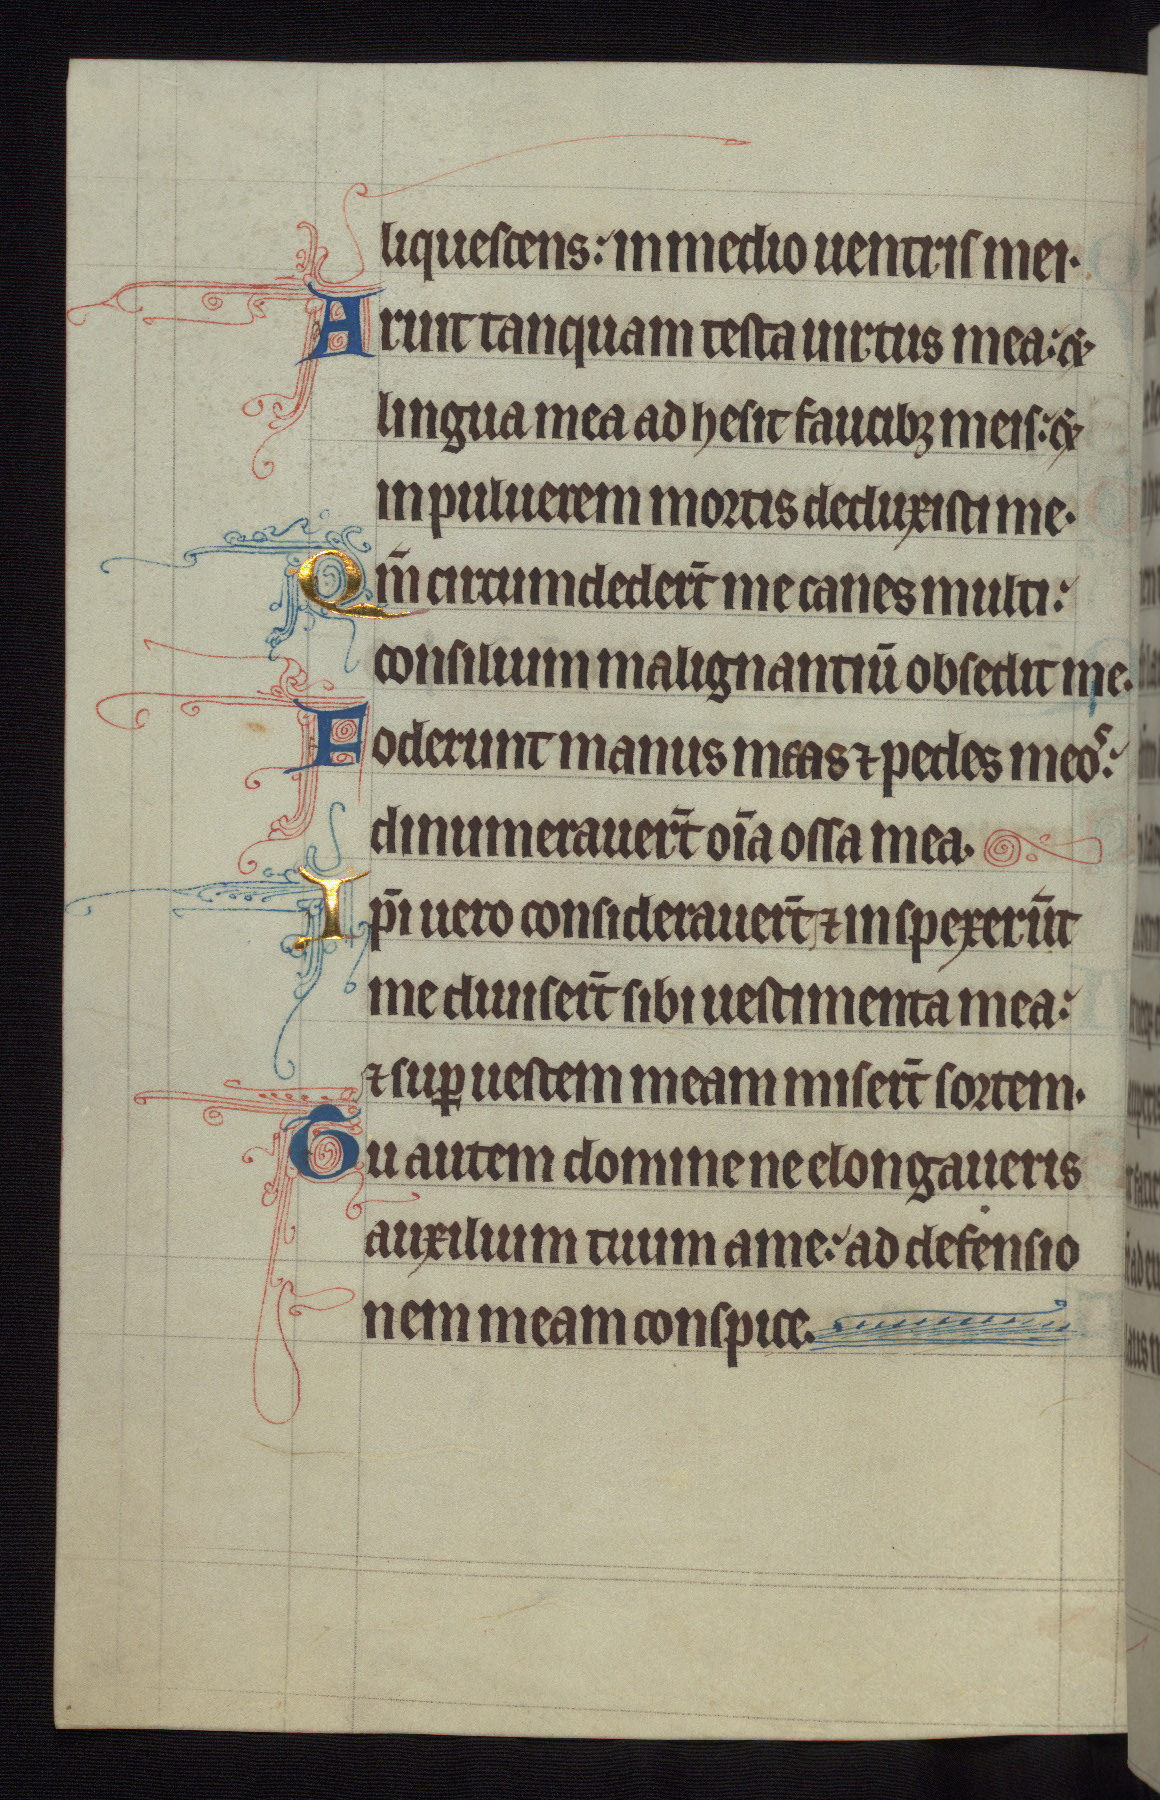 liquescens: in medio uentris mei.
Aruit tanquam testa uirtus mea: &
lingua mea ad hesit faucibꝫ meis: &
in puluerem mortis deduxisti me.
Qm̄ circumdeder̄t me canes multi:
consilium malignantiū obsedit me.
Foderunt manus meas ⁊ pedes meoˢ:
dinumerauer̄t oīa ossa mea.
Ip̄i uero considerauer̄t ⁊ inspexerūt
me diuiser̄t sibi uestimenta mea:
⁊ suꝑ uestem meam miser̄t sortem.
Tu autem domine ne elongaueris
auxilium tuum a me: ad defensio
nem meam conspice.